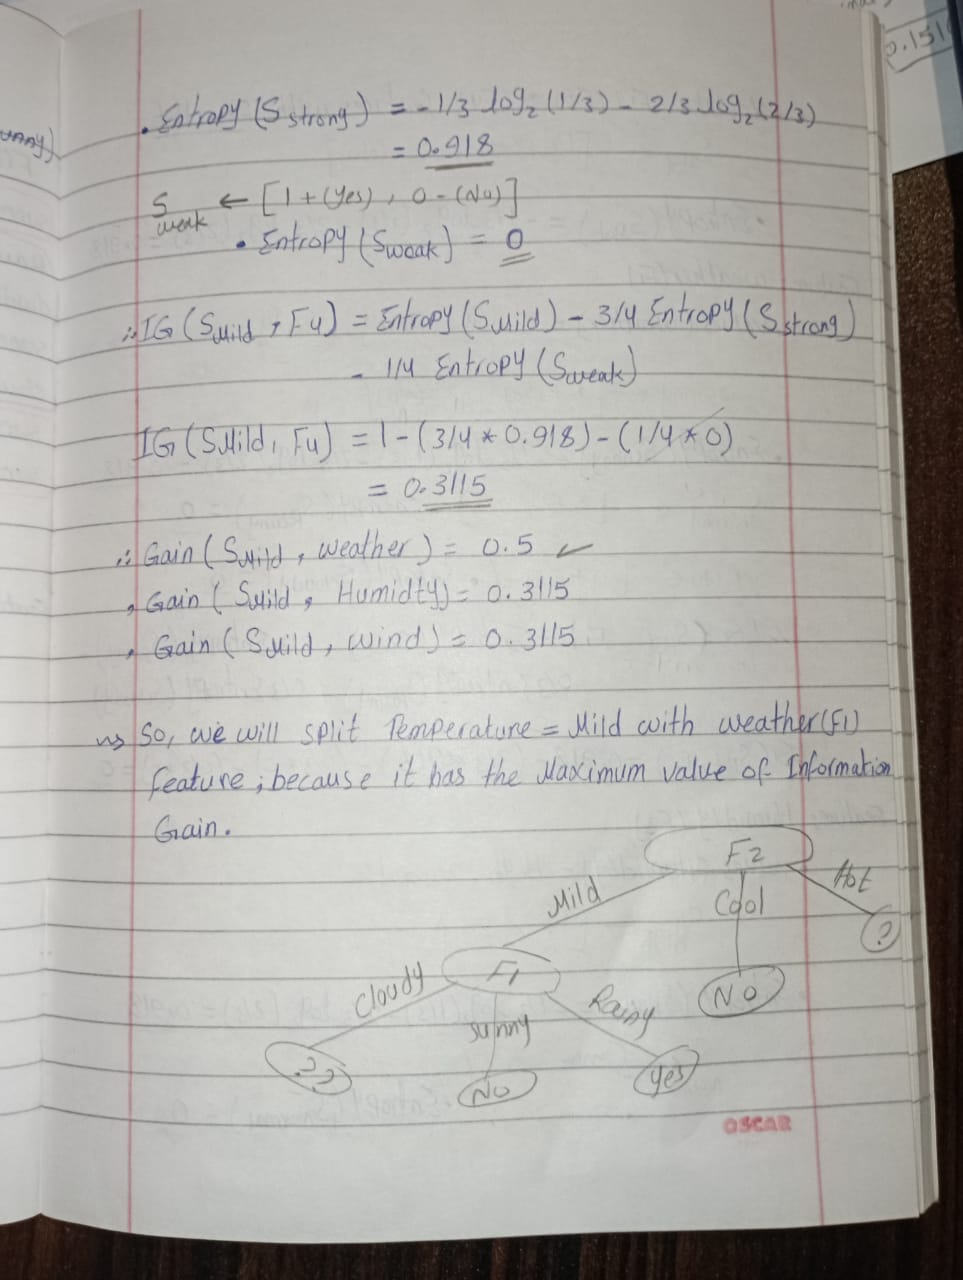 0.151
unny)
• Entropy (S strong) = -1/3 log₂ (1/3) - 2/3 log₂ (2/3)
= 0.918
S weak ← [1+(Yes), 0-(No)]
• Entropy (Sweak) = 0
∴ IG (SMild, F4) = Entropy (SMild) - 3/4 Entropy (S strong)
- 1/4 Entropy (Sweak)
IG (SMild, F4) = 1 - (3/4 * 0.918) - (1/4 * 0)
= 0.3115
∴ Gain (SMild, weather) = 0.5 ✓
, Gain (SMild, Humidty) = 0.3115
, Gain (SMild, wind) = 0.3115
⇒ So, we will split Temperature = Mild with weather (F1)
feature; because it has the Maximum value of Information
Gain.
F2
Mild Cool Hot
?
F1 NO
Cloudy sunny Rainy
?? NO Yes
OSCAR